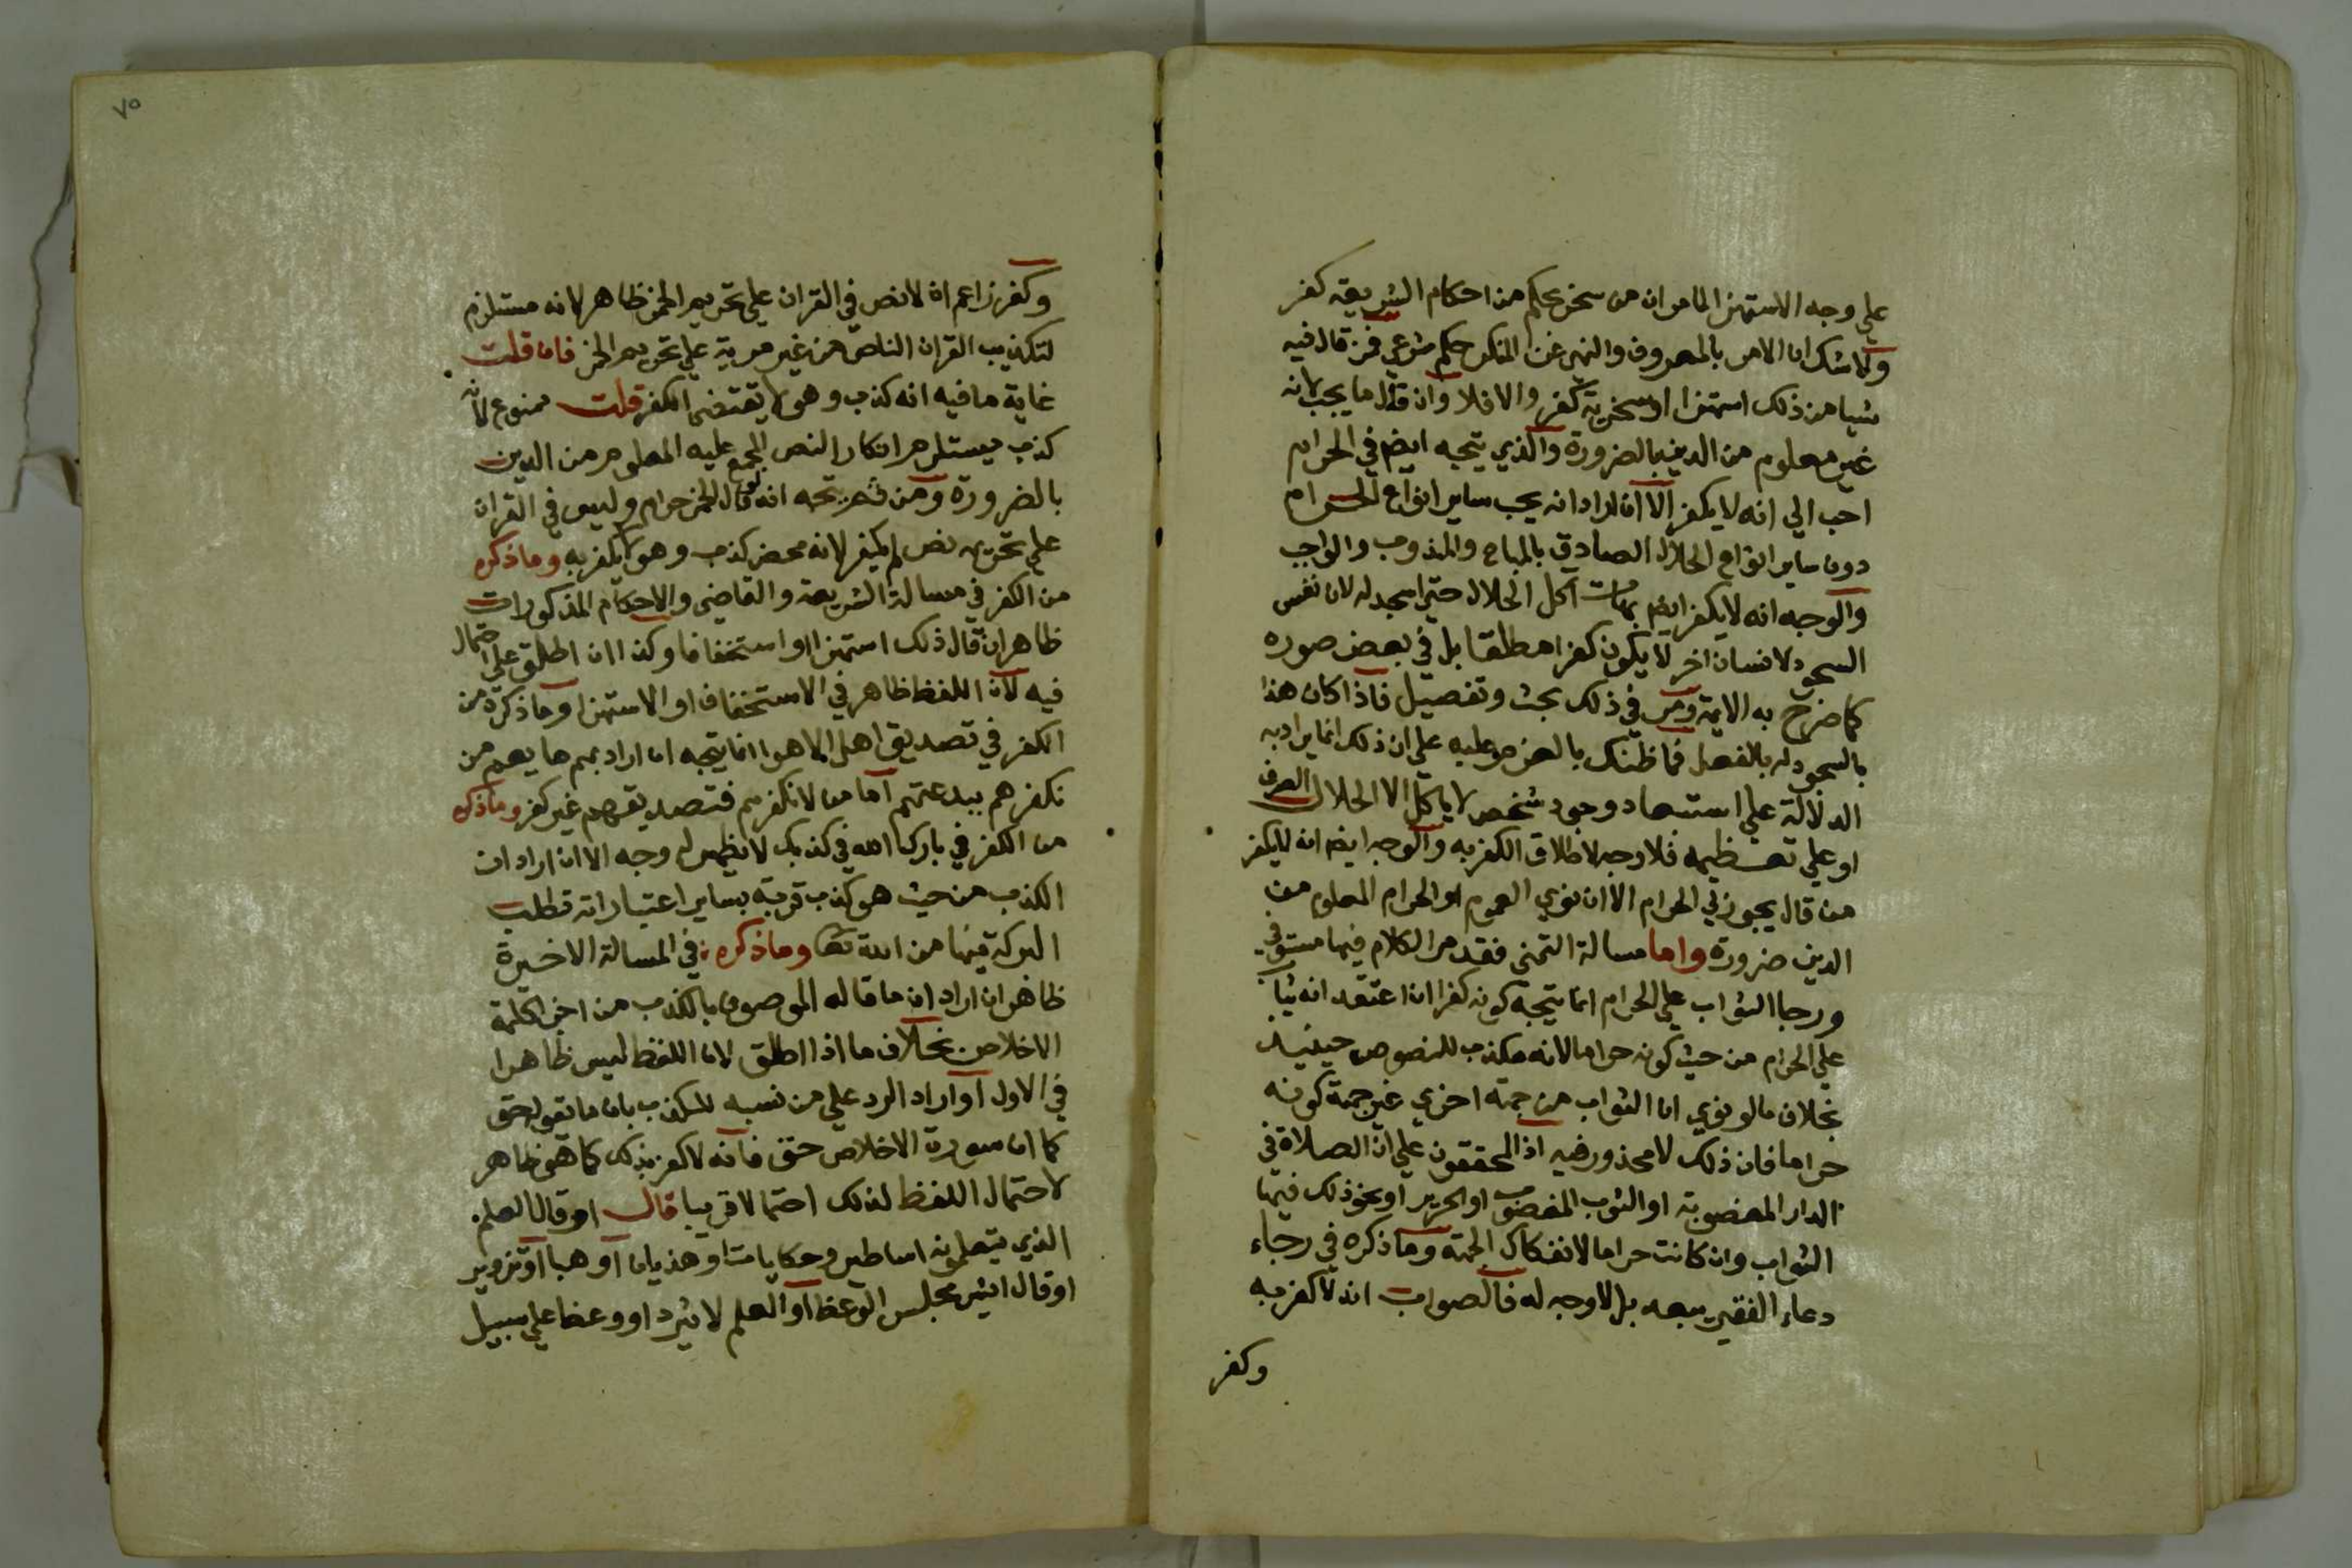 علي وجه الاستهزا لما مر ان من سخر بحكم من احكام الشريعة كفر
ولا شك ان الامر بالمعروف والنهي عن المنكر حكم شرعي فمن قال فيه
شيا من ذلك استهزا او سخرية كفر والا فلا وان قال ما يجب لانه
غير معلوم من الدين بالضرورة والذي يتجه ايضا في الحرام
احب الي انه لا يكفر الا ان اراد انه يحب ساير انواع الحرام
دون ساير انواع الحلال الصادق بالمباح والمندوب والواجب
والوجه انه لا يكفر ايضا بهات اكل الحلال حتي اسجد له لان نفس
السجود لانسان اخر لا يكون كفرا مطلقا بل في بعض صوره
كما صرح به الايمة ومر في ذلك بحث وتفصيل فاذا كان هذا
بالسجود له بالفعل فما ظنك بالعزم عليه علي ان ذلك انما يراد به
الدلالة علي استبعاد وجود شخص لا ياكل الا الحلال الصرف
او علي تعظيمه فلا وجه لاطلاق الكفر به والوجه ايضا انه لا يكفر
من قال يجوز لي الحرام الا ان نوي العموم او الحرام المعلوم من
الدين ضرورة واما مسالة التمني فقد مر الكلام فيها مستوفي
ورجا الثواب علي الحرام انما يتجه كونه كفرا ان اعتقد انه يثاب
علي الحرام من حيث كونه حراما لانه مكذب للنصوص حينيذ
بخلاف ما لو نوي ان الثواب من جهة اخري غير جهة كونه
حراما فان ذلك لا محذور فيه اذ المحققون علي ان الصلاة في
الدار المغصوبة او الثوب المغصوب او الحرير او نحو ذلك فيها
الثواب وان كانت حراما لانفكاك الجهة وما ذكره في رجاء
دعاء الفقير يبعد بل لا وجه له فالصواب انه لا كفر به
وكفر
٧٥
وكفر زاعم ان لا نص في القران علي تحريم الخمر ظاهر لانه مستلزم
لتكذيب القران الناص من غير مرية علي تحريم الخمر فان قلت
غاية ما فيه انه كذب وهو لا يقتضي الكفر قلت ممنوع لانه
كذب يستلزم انكار النص المجمع عليه المعلوم من الدين
بالضرورة ومن ثم يتجه انه لو قال الخمر حرام وليس في القران
علي تحريمه نص لم يكفر لانه محض كذب وهو لا يكفر به وما ذكره
من الكفر في مسالة الشريعة والقاضي والاحكام المذكورات
ظاهر ان قال ذلك استهزا او استخفافا وكذا ان اطلق علي احتمال
فيه لان اللفظ ظاهر في الاستخفاف او الاستهزا وما ذكره من
الكفر في تصديق اهل الاهوا انما يتجه ان اراد بهم ما يعم من
نكفرهم ببدعتهم اما من لا نكفرهم فتصديقهم غير كفر وما ذكره
من الكفر في بارك الله في كذبك لا يظهر له وجه الا ان اراد ان
الكذب من حيث هو كذب قربة بساير اعتباراته تطلب
البركة فيها من الله تعا وما ذكره في المسالة الاخيرة
ظاهر ان اراد ان ما قاله الموصوف بالكذب من اخبر الكلمة
الاخلاص بخلاف ما اذا اطلق لان اللفظ ليس ظاهرا
في الاول او اراد الرد علي من نسبه للكذب بان ما تقوله حق
كما ان سورة الاخلاص حق فانه لا كفر بذلك كما هو ظاهر
لاحتمال اللفظ لذلك احتمالا قريبا قال او قال العلم
الذي يتعلمونه اساطير وحكايات او هذيان او هبا او تزوير
او قال ايش مجلس الوعظ او العلم لا يثرد او وعضا علي سبيل